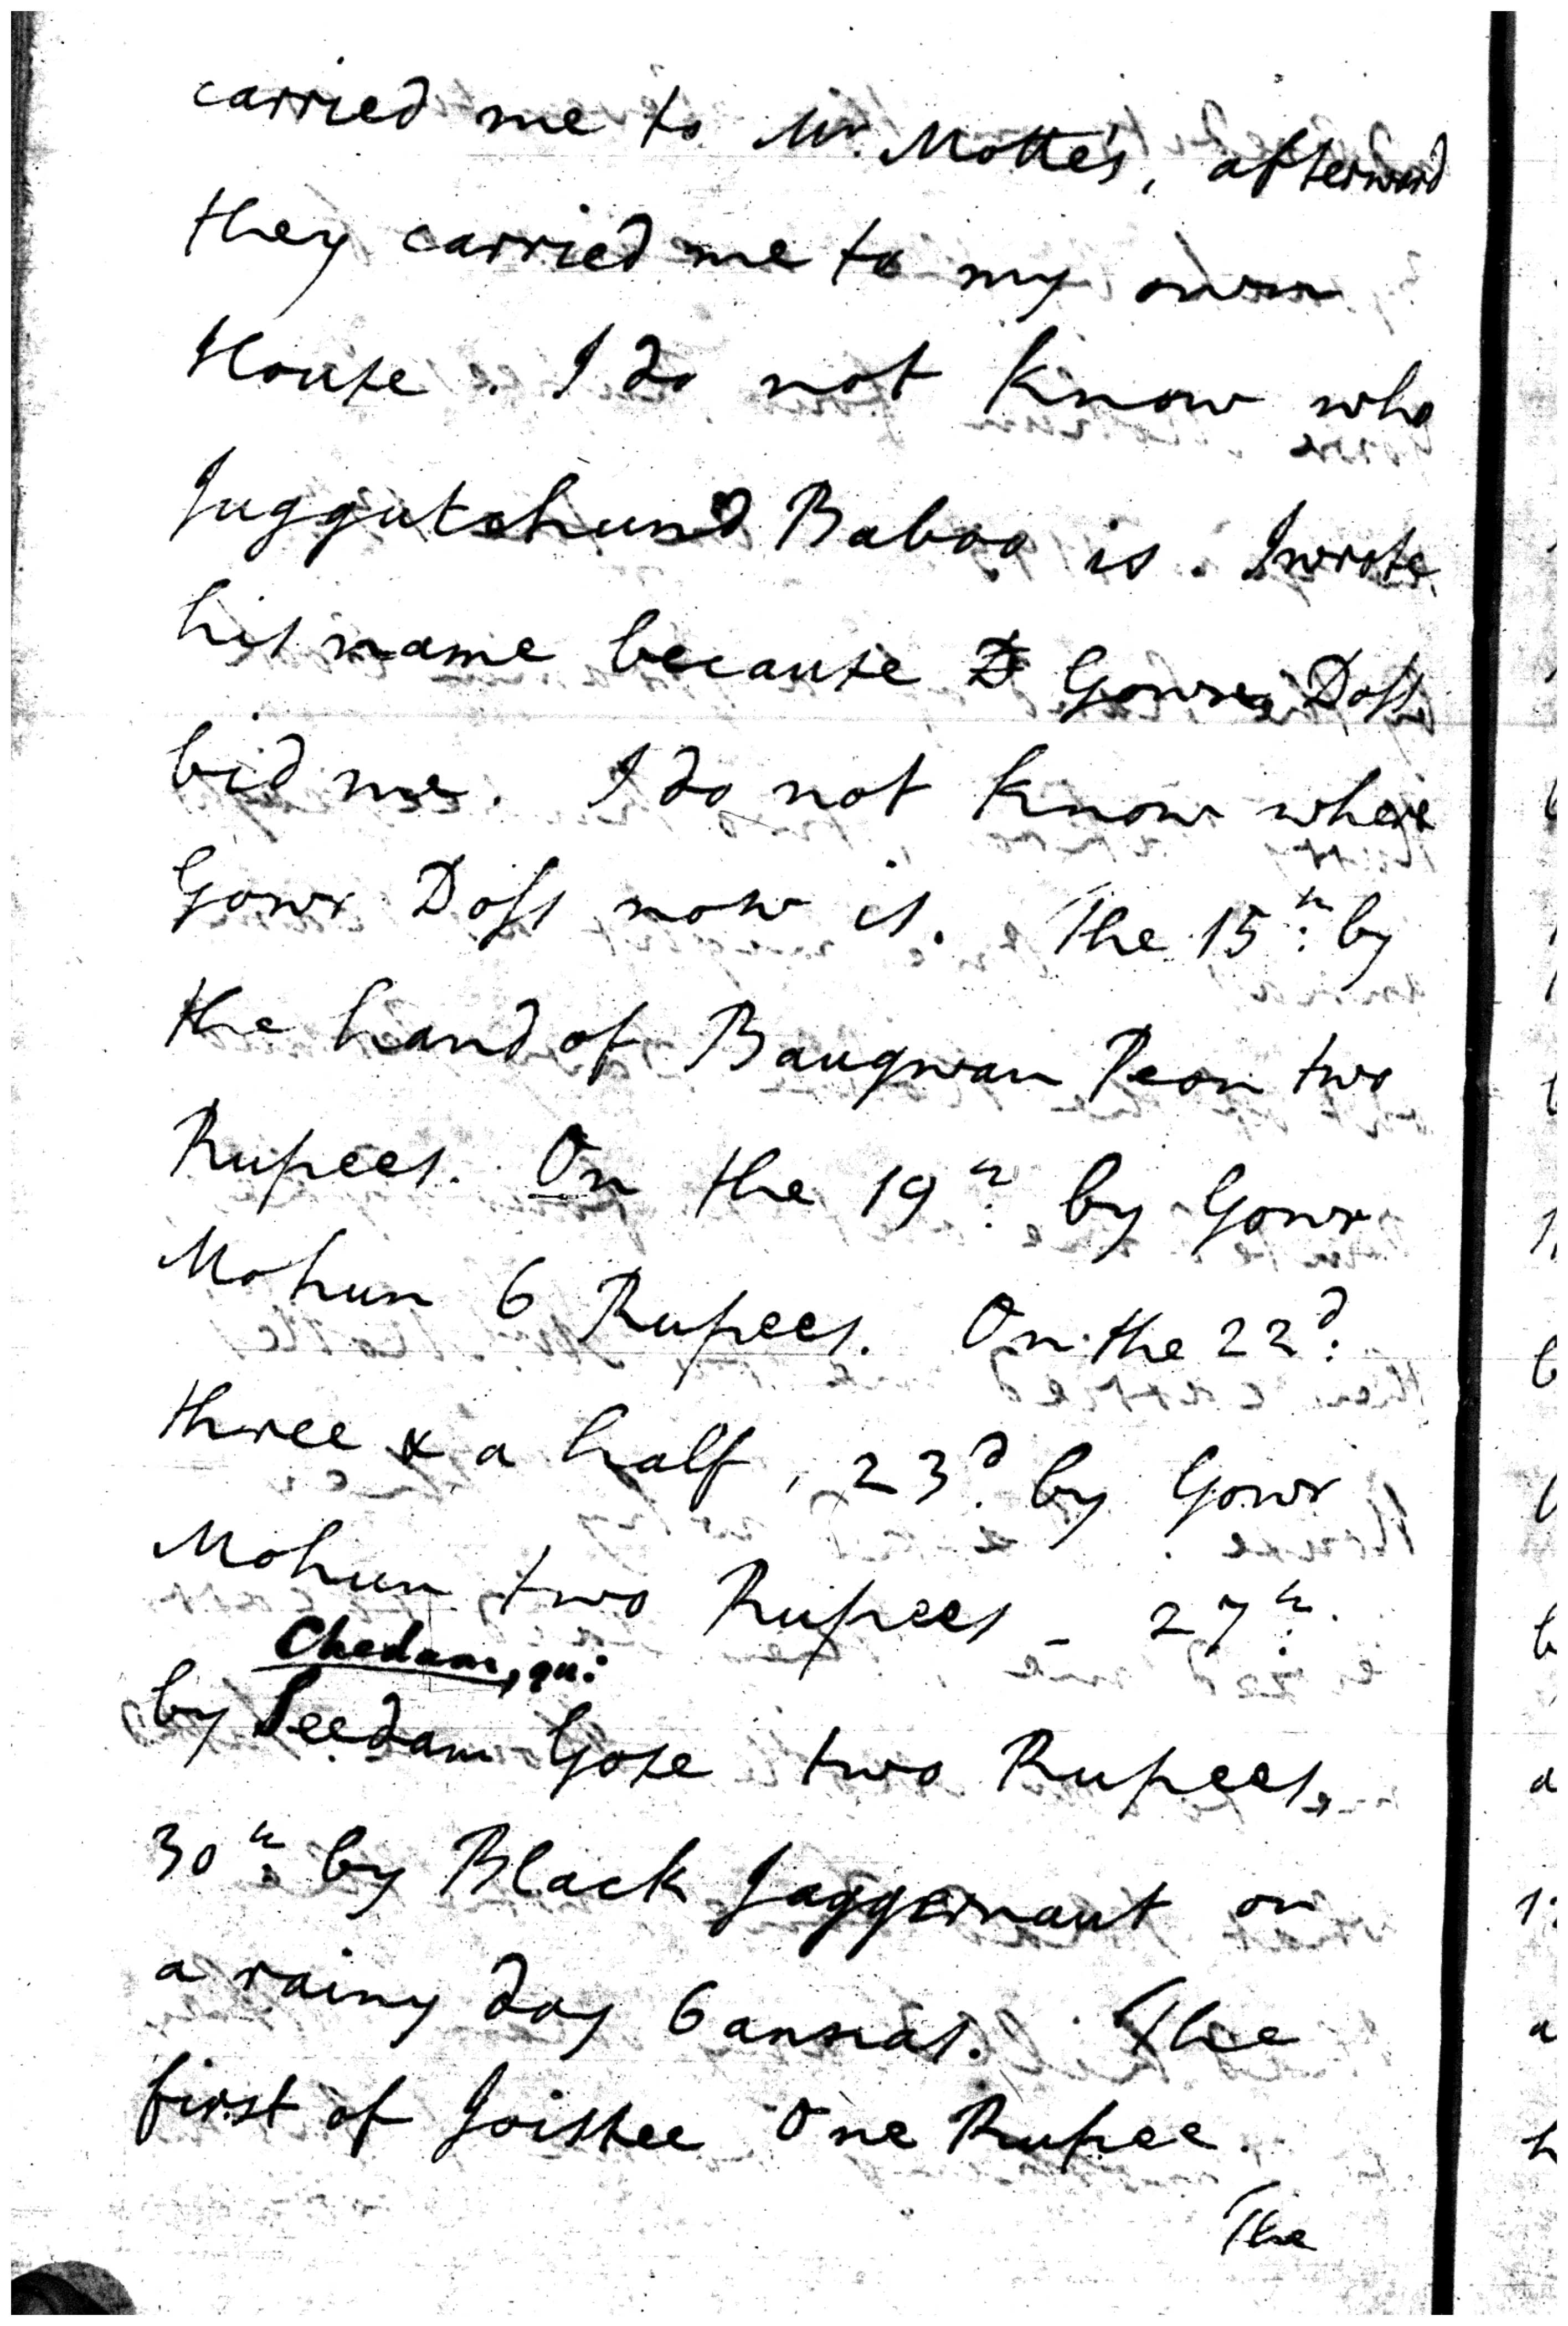 carried me to Mr. Motte's, afterward
they carried me to my own
House. I do not know who
Juggutchund Baboo is. I wrote
his name because Gowr Doss
bid me. I do not know where
Gowr Doss now is. The 15th: by
the hand of Baugwan Peon two
Rupees. On the 19th: by Gowr
Mohun 6 Rupees. On the 22d:
three & a half, 23d: by Gowr
Mohun two Rupees - 27th:
Chedam, qu:
by Seedam Gose two Rupees,
30th: by Black Jaggernaut on
a rainy day 6 annas. The
first of Joistee One Rupee.
The